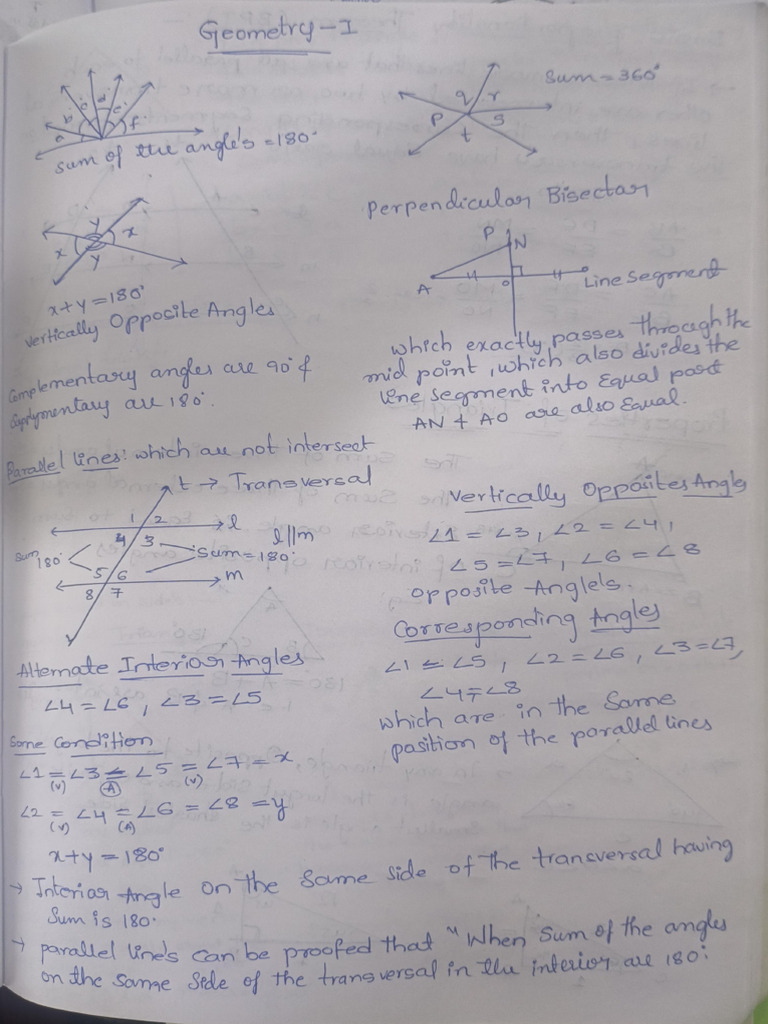 Geometry-I
a b c d e f
sum of the angle's = 180°
p q r s t
Sum = 360°
x y x y
x+y = 180°
Vertically Opposite Angles
Complementary angles are 90° &
Supplymentary are 180°.
Perpendicular Bisectar
P
N
A
O
Line Segment
which exactly passes through the
mid point, which also divides the
line segment into Equal part
AN & AO are also Equal.
Parallel lines: which are not intersect
t → Transversal
1 2
l
4 3
l||m
Sum 180°
Sum = 180°
5 6
m
8 7
Vertically Opposites Angles
∠1 = ∠3, ∠2 = ∠4,
∠5 = ∠7, ∠6 = ∠8
Opposite Angle's.
Corresponding Angles
∠1 = ∠5, ∠2 = ∠6, ∠3 = ∠7,
∠4 = ∠8
which are in the Same
position of the parallel lines
Alternate Interiar Angles
∠4 = ∠6, ∠3 = ∠5
Some Condition
∠1 = ∠3 = ∠5 = ∠7 = x
(V) (A) (V)
∠2 = ∠4 = ∠6 = ∠8 = y
(V) (A)
x+y = 180°
→ Interiar Angle on the Same side of the transversal having
Sum is 180.
→ parallel line's can be proofed that "When Sum of the angles
on the same side of the transversal in the interior are 180°